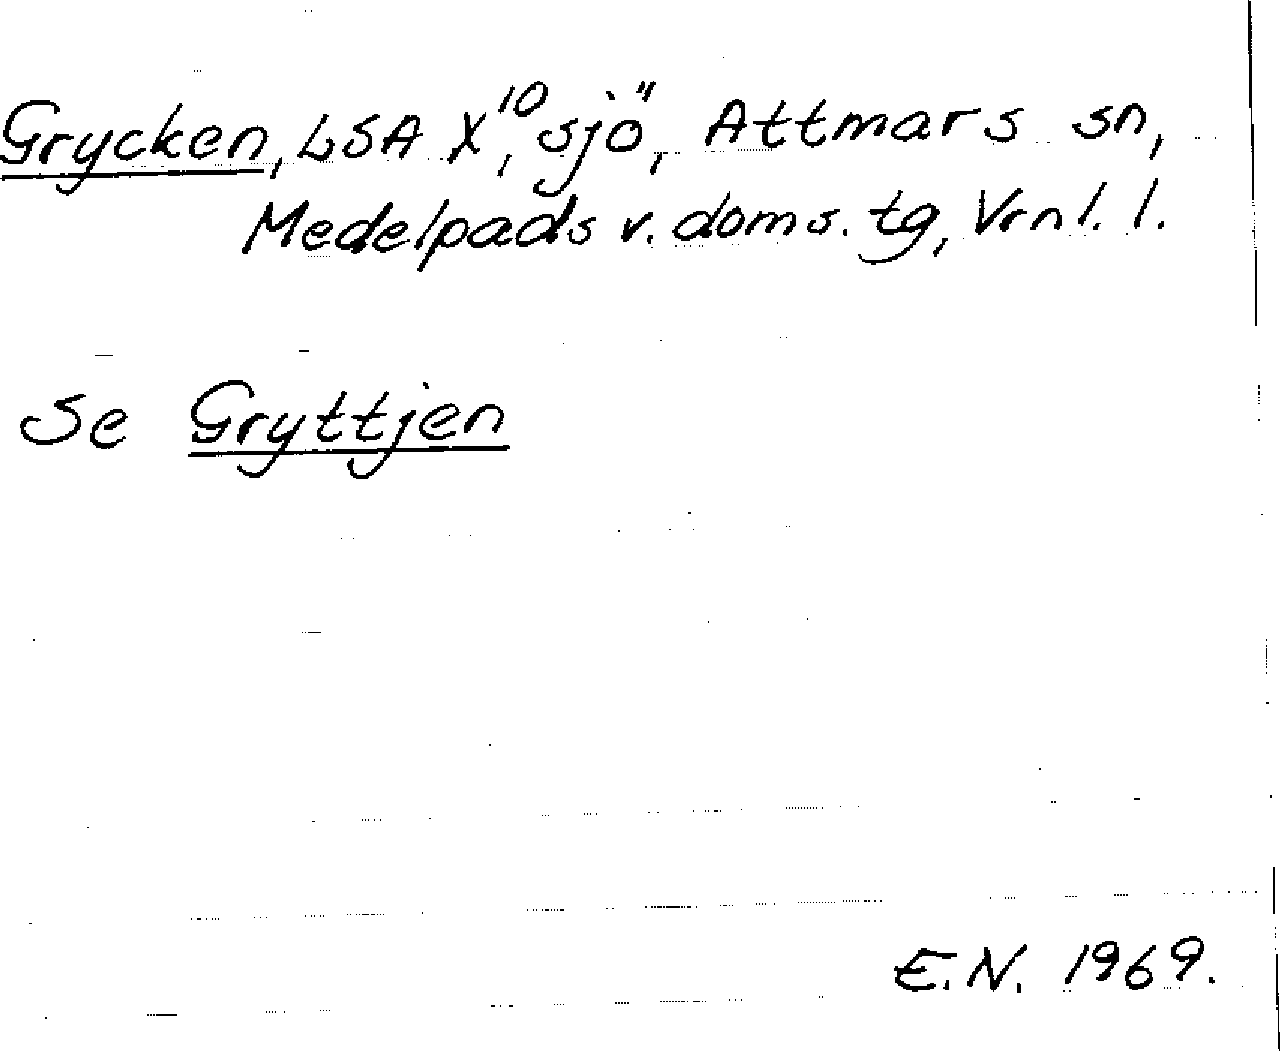 Grycken, LSA X¹⁰, sjö, Attmars sn,
Medelpads v. doms. tg, Vrnl. l.
Se Gryttjen
E.N. 1969.